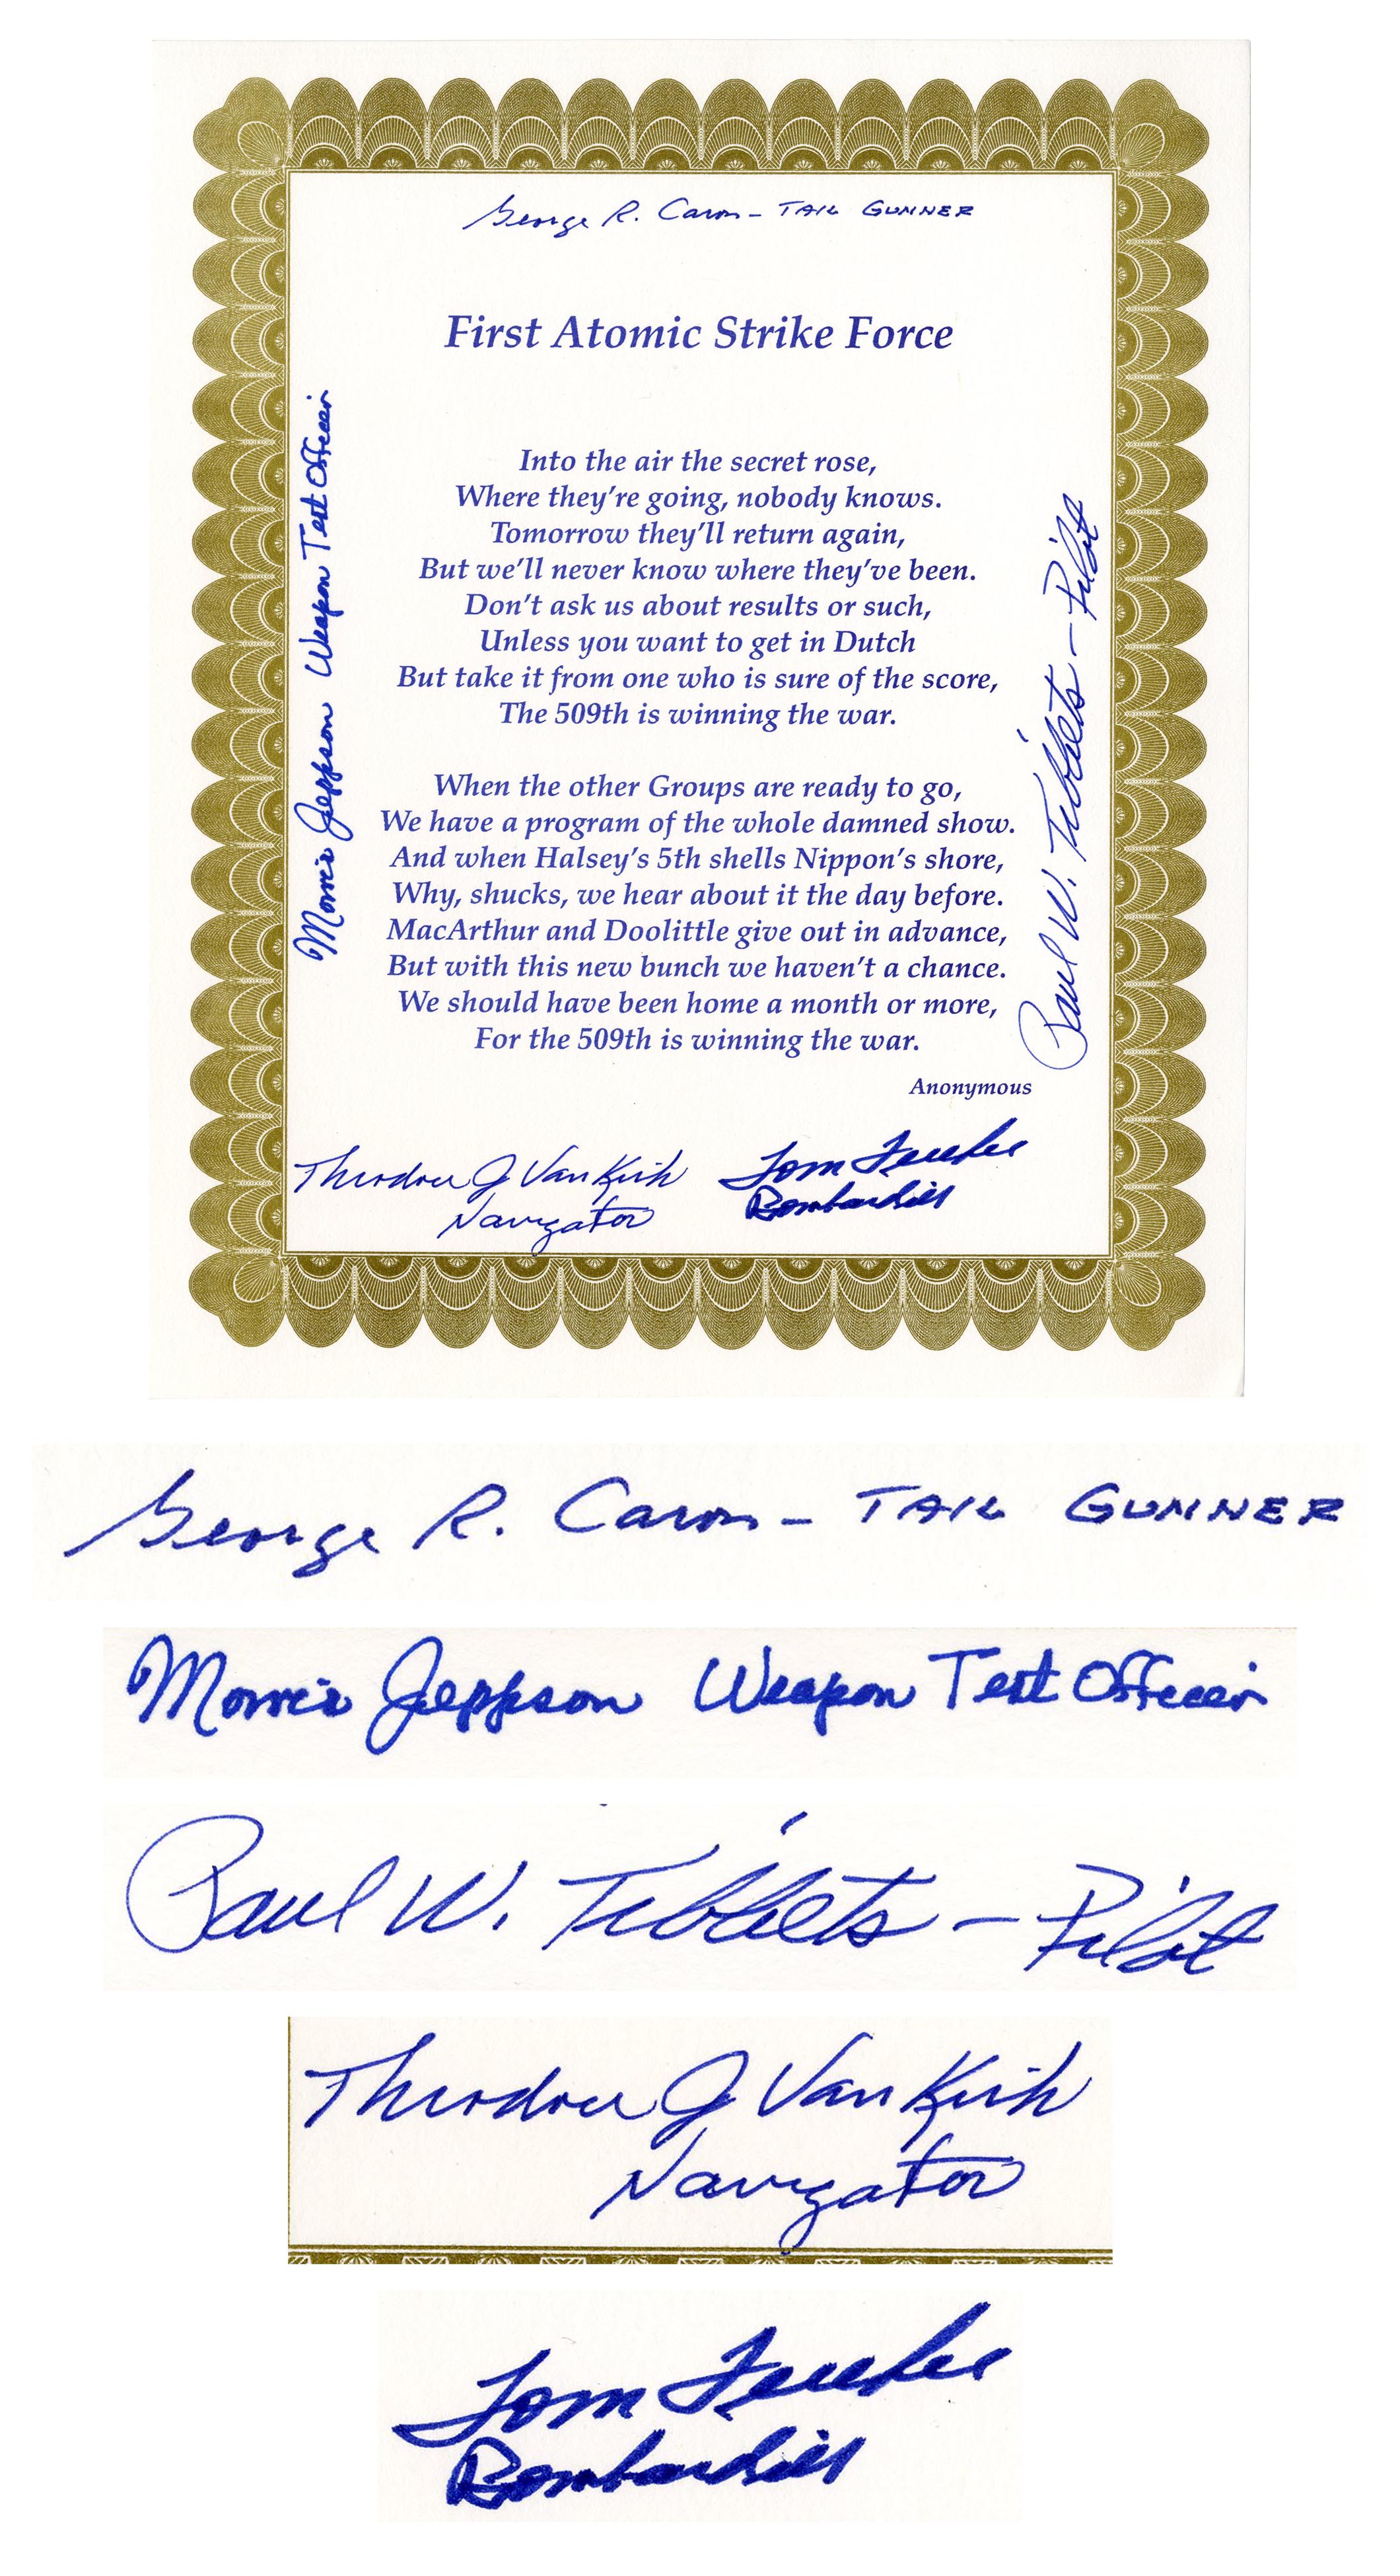 George R. Caron - TAIL GUNNER
First Atomic Strike Force
Into the air the secret rose,
Where they're going, nobody knows.
Tomorrow they'll return again,
But we'll never know where they've been.
Don't ask us about results or such,
Unless you want to get in Dutch
But take it from one who is sure of the score,
The 509th is winning the war.
When the other Groups are ready to go,
We have a program of the whole damned show.
And when Halsey's 5th shells Nippon's shore,
Why, shucks, we hear about it the day before.
MacArthur and Doolittle give out in advance,
But with this new bunch we haven't a chance.
We should have been home a month or more,
For the 509th is winning the war.
Anonymous
Morris Jeppson Weapon Test Officer
Paul W. Tibbets - Pilot
Theodore J Van Kirk
Navigator
Tom Ferebee
Bombardier
George R. Caron - TAIL GUNNER
Morris Jeppson Weapon Test Officer
Paul W. Tibbets - Pilot
Theodore J Van Kirk
Navigator
Tom Ferebee
Bombardier